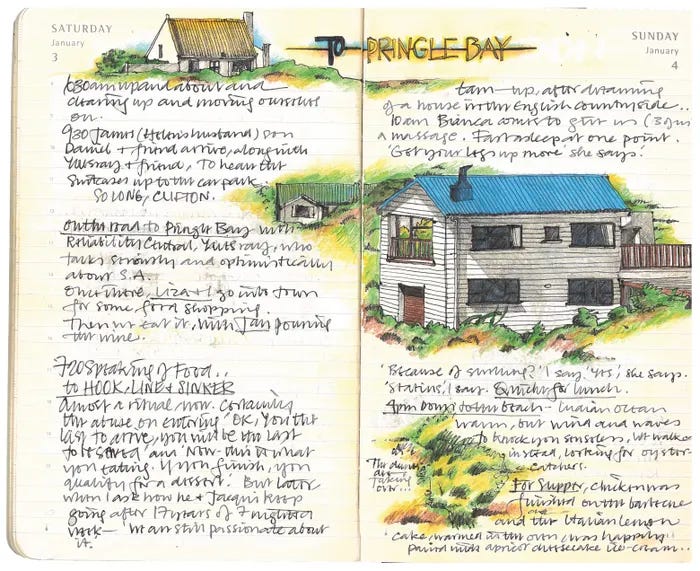 SATURDAY
January
3
TO PRINGLE BAY
SUNDAY
January
4
630am up and about and
clearing up and moving ourselves
on.
930 James (Helen's husband) son
Daniel + friend arrive, along with
Yuusray + friend, To heave the
suitcases up to the car park.
SO LONG, CLIFTON.
on the road to Pringle Bay with
Reliability Central, Yuusray, who
talks seriously and optimistically
about S.A.
Once there, Liza + I go into town
for some food shopping.
Then we eat it, with Jan pouring
the wine.
720 Speaking of Food..
to HOOK, LINE + SINKER
Almost a ritual now. Certainly
the abuse on entering 'OK, You're the
last to arrive, you will be the last
to be served' and 'Now this is what
you eating. If you finish, you
qualify for a dessert.' But later
when I ask how he + Jacqui keep
going after 17 years of 7 nights a
week - 'We are still passionate about
it.'
7am - up, after dreaming
of a house in the English countryside..
10am Bianca comes to give us (3) of us
a massage. Fast asleep at one point.
'Get your legs up more' she says.
'Because of surfing?' I say. 'Yes', she says.
'Status', I say. Quiche for lunch.
4pm Down to the beach - Indian Ocean
warm, but wind and waves
to knock you senseless, we walk
instead, looking for oyster-
catchers.
The dunes
are
taking
over...
For Supper, chicken was
finished on the barbecue
and the Italian lemon
cake, warmed in the oven, was happily
paired with apricot cheesecake ice-cream...